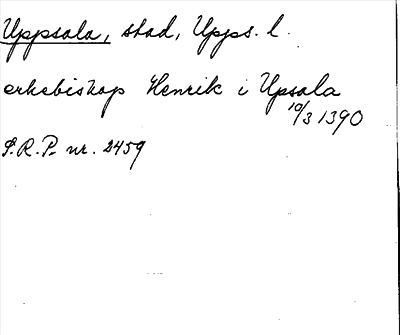 Uppsala, stad, Upps. l.
erkebiskop Henrik i Upsala
10/3 1390
S.R.P. nr. 2459